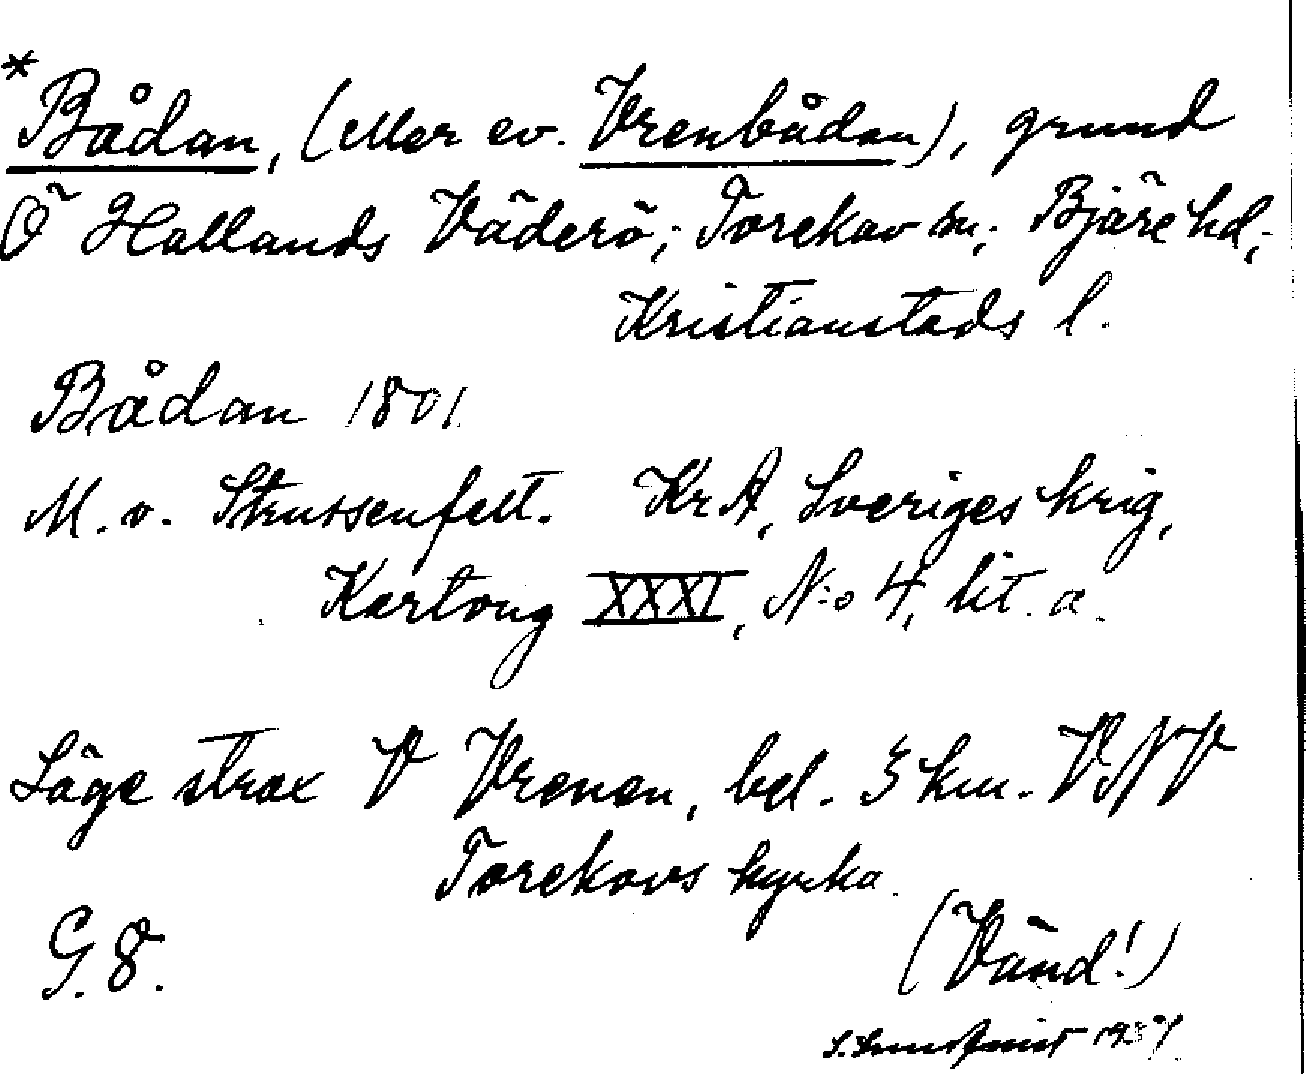 *Bådan, (eller ev. Vrenbådan), grund
Ö Hallands Väderö; Torekov sn; Bjäre hd;
Kristianstads l.
Bådan 1801
M. v. Strussenfelt. KrA, Sveriges krig,
Kartong XXXI, N:o 4, lit. a.
Läge strax V Vrenen, bel. 3 km. VNV
Torekovs kyrka.
G. 8. (Vänd!)
S. Lundqvist